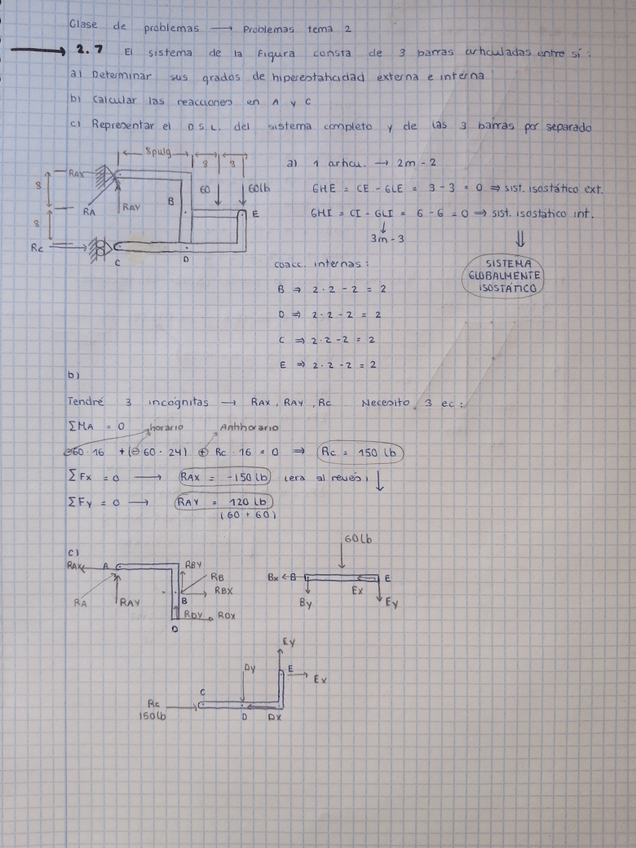 Clase de problemas → Problemas tema 2
→ 2.7 El sistema de la Figura consta de 3 barras articuladas entre sí:
a) Determinar sus grados de hiperestaticidad externa e interna
b) Calcular las reacciones en A y C
c) Representar el D.S.L. del sistema completo y de las 3 barras por separado
8pulg 8 8
RAX A 8 B 60 60lb
RA RAY E
8
RC C D
a) 1 articu. → 2m - 2
GHE = CE - GLE = 3 - 3 = 0 ⇒ sist. isostático ext.
GHI = CI - GLI = 6 - 6 = 0 → sist. isostático int.
↓ ⇓
3m - 3
SISTEMA GLOBALMENTE ISOSTÁTICO
coacc. internas:
B ⇒ 2·2 - 2 = 2
D ⇒ 2·2 - 2 = 2
C ⇒ 2·2 - 2 = 2
E ⇒ 2·2 - 2 = 2
b)
Tendré 3 incógnitas → RAX, RAY, RC Necesito 3 ec:
ΣMA = 0 horario Antihorario
⊖60·16 + (⊖60·24) ⊕ RC·16 = 0 ⇒ RC = 150 lb
ΣFx = 0 → RAX = -150 lb (era al revés) ↓
ΣFy = 0 → RAY = 120 lb
(60 + 60)
c)
RAX A RBY
RB
RA RAY B RBX
RDY RDX
D
60lb
Bx B E
By Ex Ey
Ey
Dy E Ex
C
RC
150lb D Dx